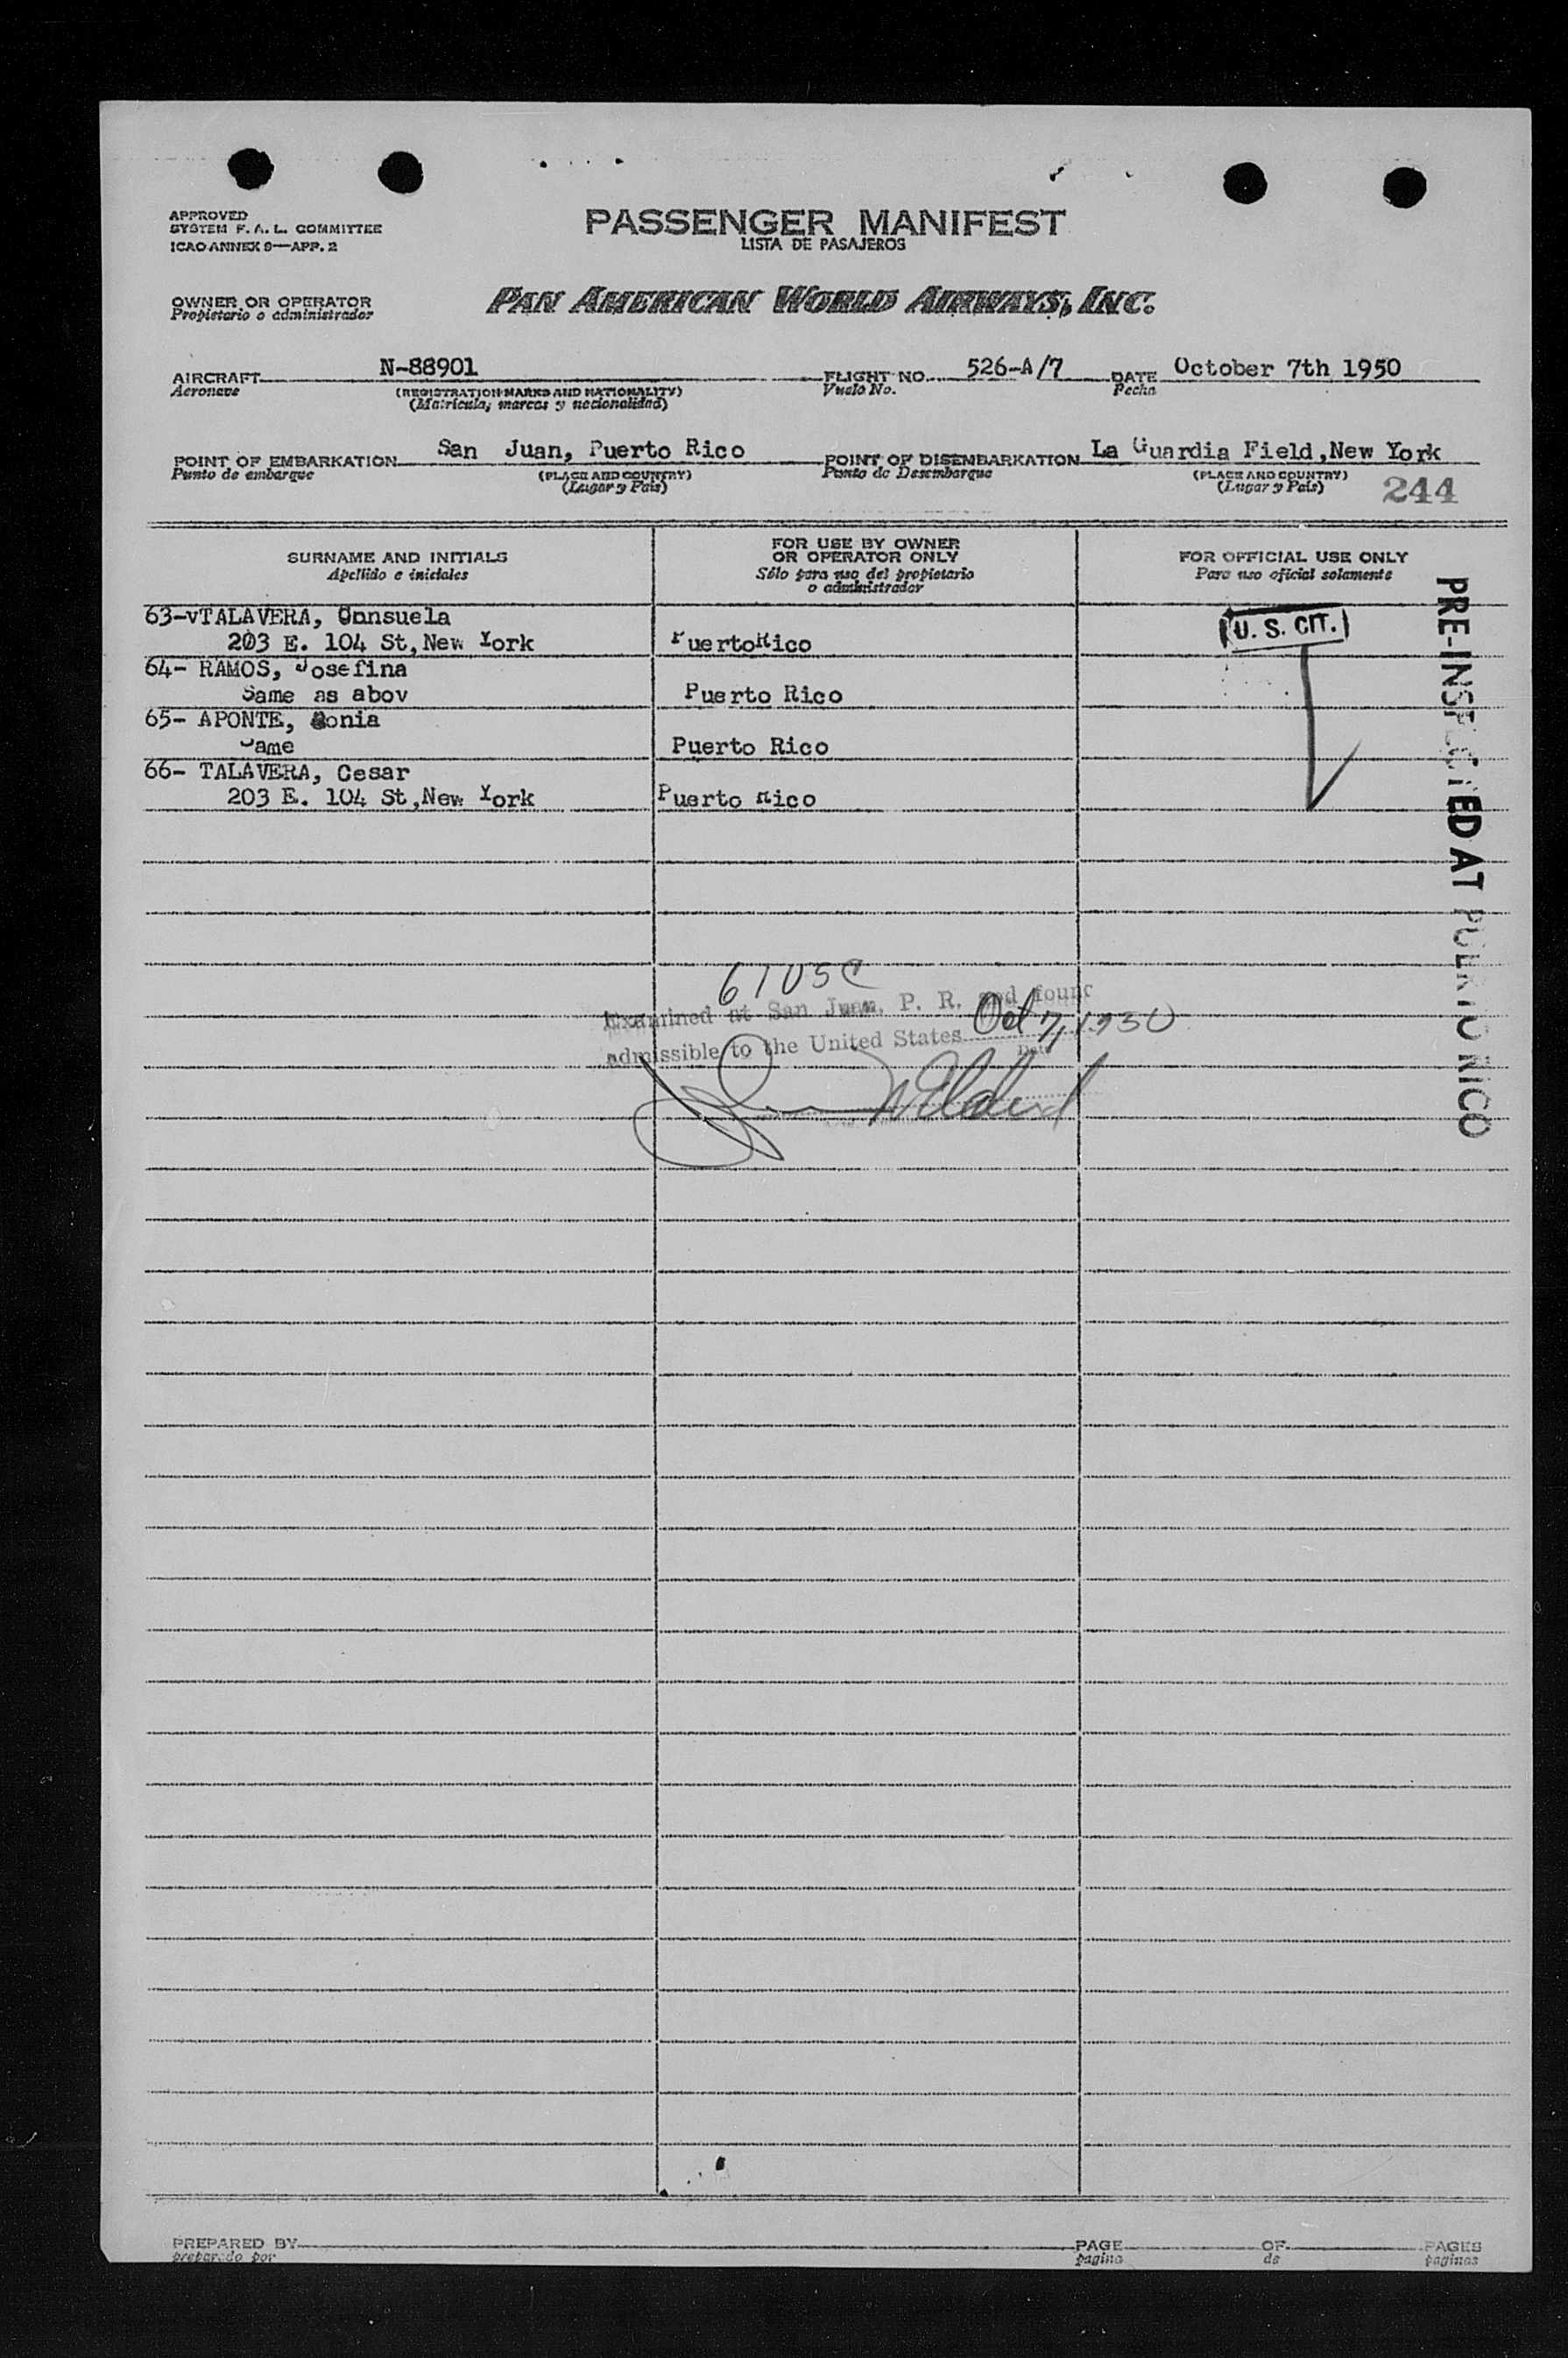 APPROVED
SYSTEM F. A. L. COMMITTEE
ICAO ANNEX 9—APP. 2
PASSENGER MANIFEST
LISTA DE PASAJEROS
OWNER OR OPERATOR
Propietario o administrador
PAN AMERICAN WORLD AIRWAYS, INC.
AIRCRAFT N-88901 FLIGHT NO. 526-A/7 DATE October 7th 1950
Aeronave (REGISTRATION MARKS AND NATIONALITY) Vuelo No. Fecha
(Matricula, marcas y nacionalidad)
POINT OF EMBARKATION San Juan, Puerto Rico POINT OF DISEMBARKATION La Guardia Field,New York
Punto de embarque (PLACE AND COUNTRY) Punto de Desembarque (PLACE AND COUNTRY)
(Lugar y Pais) (Lugar y Pais) 244
SURNAME AND INITIALS
Apellido e iniciales
FOR USE BY OWNER
OR OPERATOR ONLY
Sólo para uso del propietario
o administrador
FOR OFFICIAL USE ONLY
Para uso oficial solamente
63-vTALAVERA, Consuela
203 E. 104 St,New York PuertoRico
U. S. CIT.
64- RAMOS, Josefina
Same as abov Puerto Rico
65- APONTE, Sonia
Same Puerto Rico
66- TALAVERA, Cesar
203 E. 104 St,New York Puerto Rico
PRE-INSPECTED AT PUERTO RICO
61 USC
Examined at San Juan, P. R. and found
admissible to the United States Oct 7, 1950
Date
PREPARED BY PAGE OF PAGES
preparado por pagina de paginas